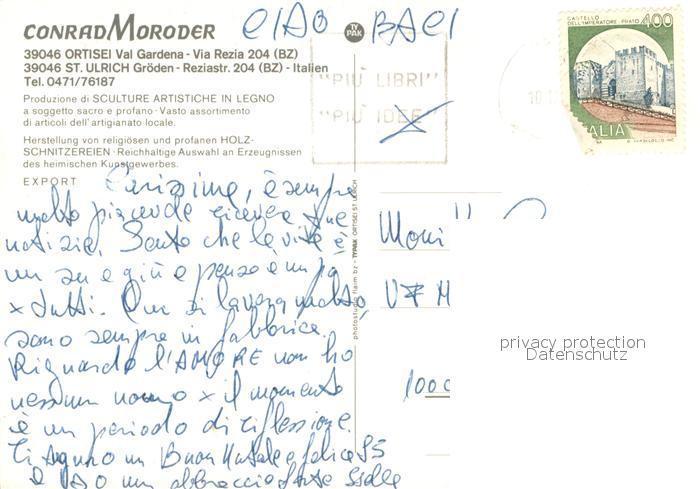 CIAO BACI
CONRAD MORODER
39046 ORTISEI Val Gardena - Via Rezia 204 (BZ)
39046 ST. ULRICH Gröden - Reziastr. 204 (BZ) - Italien
Tel. 0471/76187
Produzione di SCULTURE ARTISTICHE IN LEGNO
a soggetto sacro e profano - Vasto assortimento
di articoli dell'artigianato locale.
Herstellung von religiösen und profanen HOLZ-
SCHNITZEREIEN - Reichhaltige Auswahl an Erzeugnissen
des heimischen Kunstgewerbes.
EXPORT
TYPAK
"PIÙ LIBRI"
"PIÙ IDEE"
CASTELLO
DELL'IMPERATORE - PRATO
400
ALIA
Carissima, è sempre
molto piacevole ricevere tue
notizie. Sento che la vita è
un su e giù e penso è un pò
x tutti. Qui si lavora molto,
sono sempre in fabbrica.
Riguardo l'AMORE non ho
nessun uomo x il momento
è un periodo di riflessione.
Ti auguro un Buon Natale e felice 85
un abbraccio forte
photostudio flaim bz - TYPAK ORTISEI ST. ULRICH
Moni
V
1000
privacy protection
Datenschutz